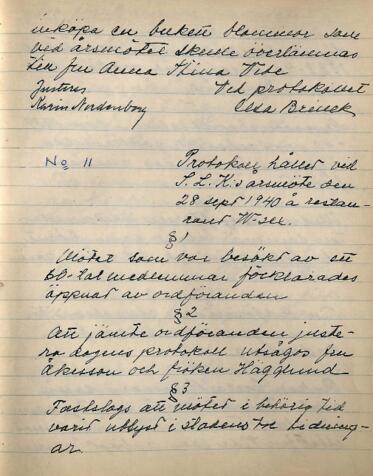 inköpa en bukett blommor som
vid årsmötet skulle överlämnas
till fru Anna Stina Vide
Justeras Vid protokollet
Karin Nordenborg Elsa Brinck
No 11 Protokoll hållet vid
S.L.K:s årsmöte den
28 sept 1940 å restau-
rant W-sex.
§ 1
Mötet som var besökt av ett
60-tal medlemmar förklarades
öppnat av ordföranden
§ 2
Att jämte ordföranden juste-
ra dagens protokoll utsågos fru
Åkesson och fröken Hägglund
§ 3
Fastslogs att mötet i behörig tid
varit utlyst i stadens tre tidning-
ar.